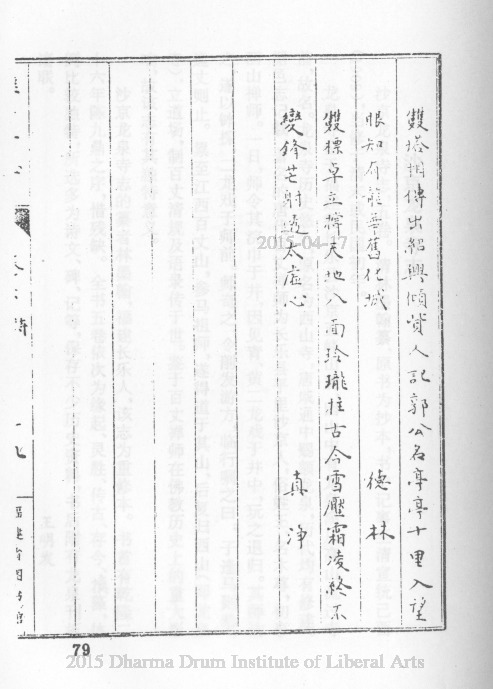 雙塔相傳出紹興傾貲人記郭公名亭亭十里入望
眼知龍華舊化城 德林
雙標卓立撐天地八面玲瓏拄古今雪壓霜凌終不
變鋒芒射透太虛心 真淨
詩
79
2015-04-17
2015 Dharma Drum Institute of Liberal Arts